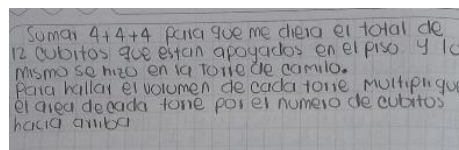 Sumar 4+4+4 para que me diera el total de
12 cubitos que estan apoyados en el piso y lo
mismo se hizo en la Torre de camilo.
Para hallar el volumen de cada torre multiplique
el area de cada torre por el numero de cubitos
hacia arriba